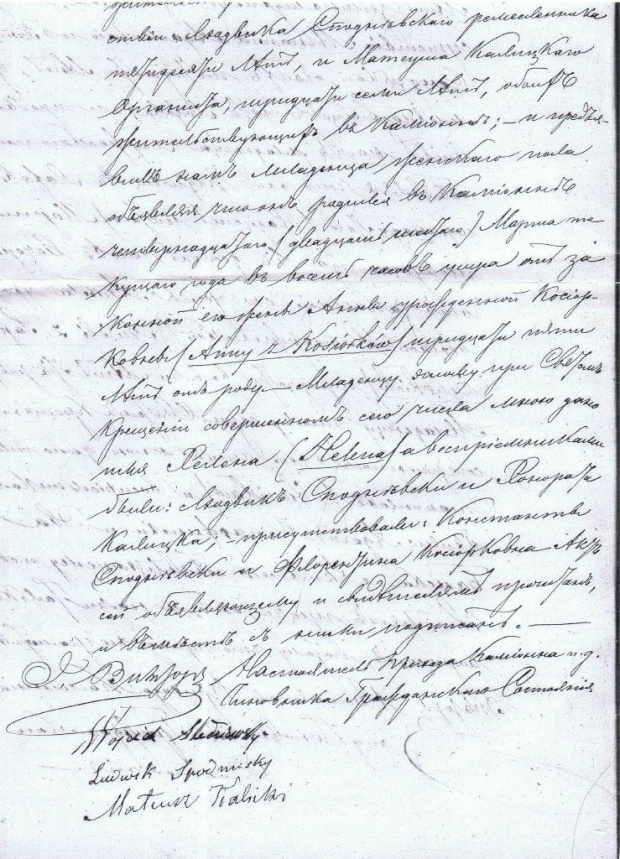 ствіи Людвика Сподневскаго ремесленника
лѣтъ, и Матеуша Калицкаго
Органиста, тридцати семи лѣтъ, обоихъ
жительствующихъ въ Каміоннѣ; — и предъя-
вилъ намъ младенца женскаго пола
объявляя что онъ родился въ Каміоннѣ
четырнадцатаго (двадцать шестаго) Марта те
кущаго года въ восемь часовъ утра отъ за
конной его жены Анны урожденной Косіор-
ковны (Anny z Kosiorków) тридцати пяти
лѣтъ отъ роду — Младенцу этому при Святомъ
Крещеніи совершонномъ сего числа мною дано
имя Хелена (Helena) а воспріемниками
были: Людвикъ Сподневски и Хонората
Калицка, — присутствовали: Константы
Сподневски и Флорентина Косіорковна Актъ
сей объявляющему и свидѣтелямъ прочитанъ,
и вмѣстѣ съ ними подписанъ. —
Настоятель прихода Каміонна и. д.
Чиновника Гражданскаго Состоянія
Ludwik
Kalicki